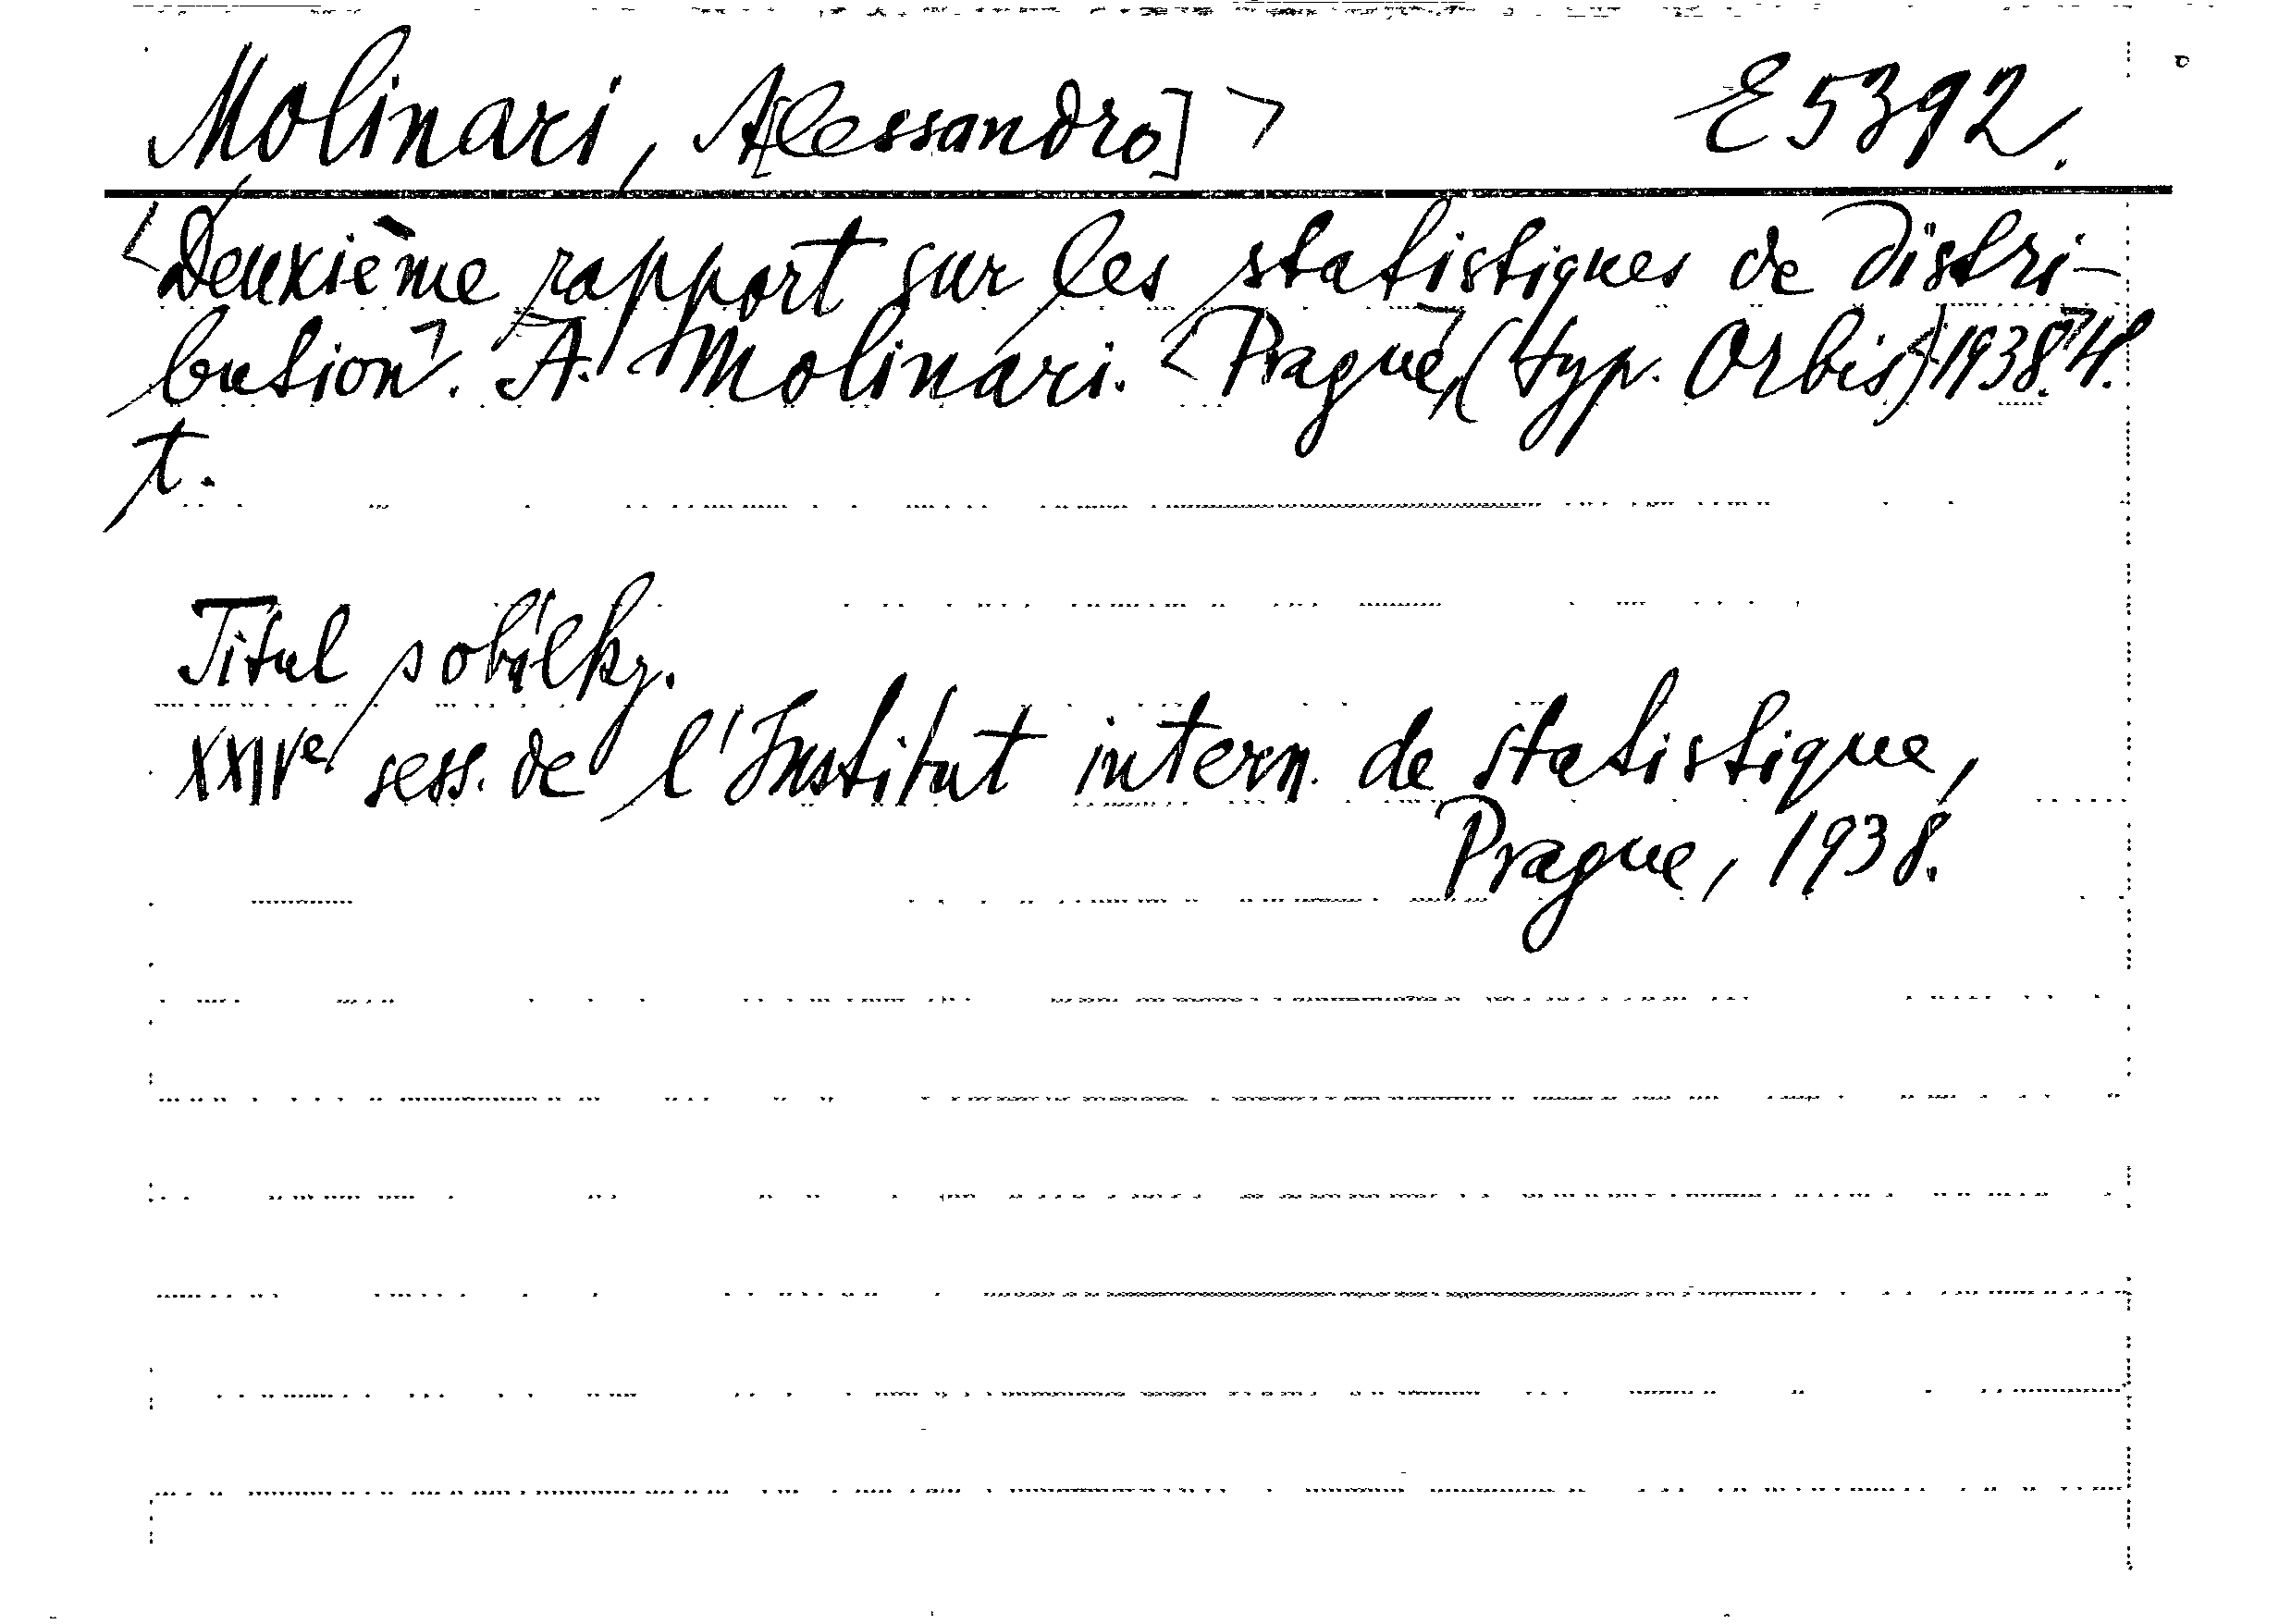 Molinari, A[lessandro] > E 5392.
<Deuxième rapport sur les statistiques de distri-
bution>. A. Molinari. <Prague>, (typ. Orbis) <1938.> 4°.
t.
Titul s obálky.
XXIVe sess. de l'Institut intern. de statistique,
Prague, 1938.